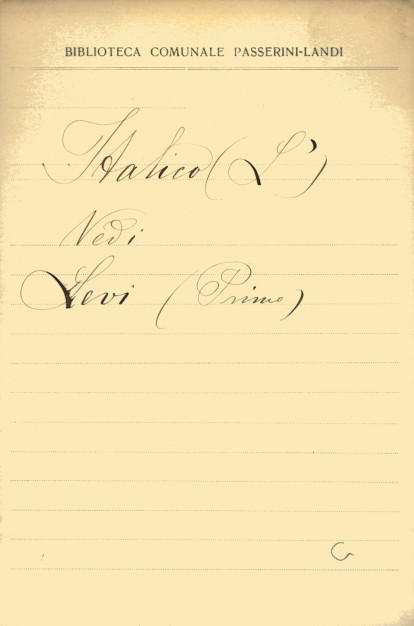 BIBLIOTECA COMUNALE PASSERINI-LANDI
Italico (L')
Vedi
Levi (Primo)
G